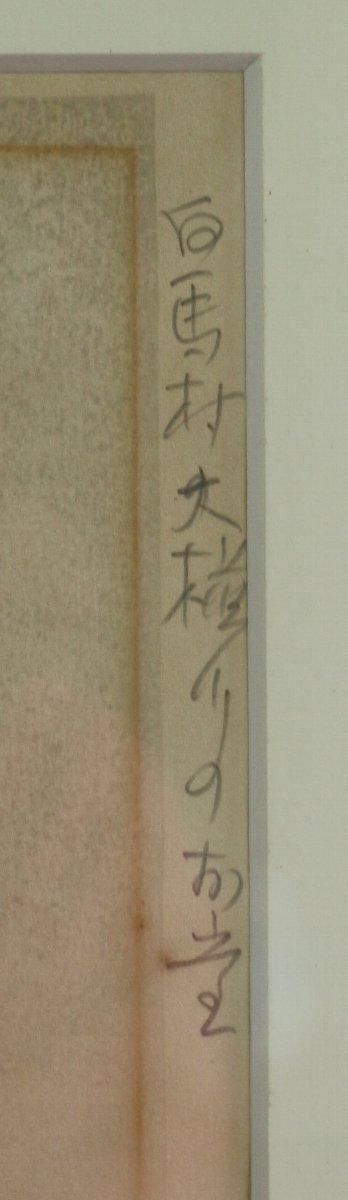 白馬村大樻川のお堂